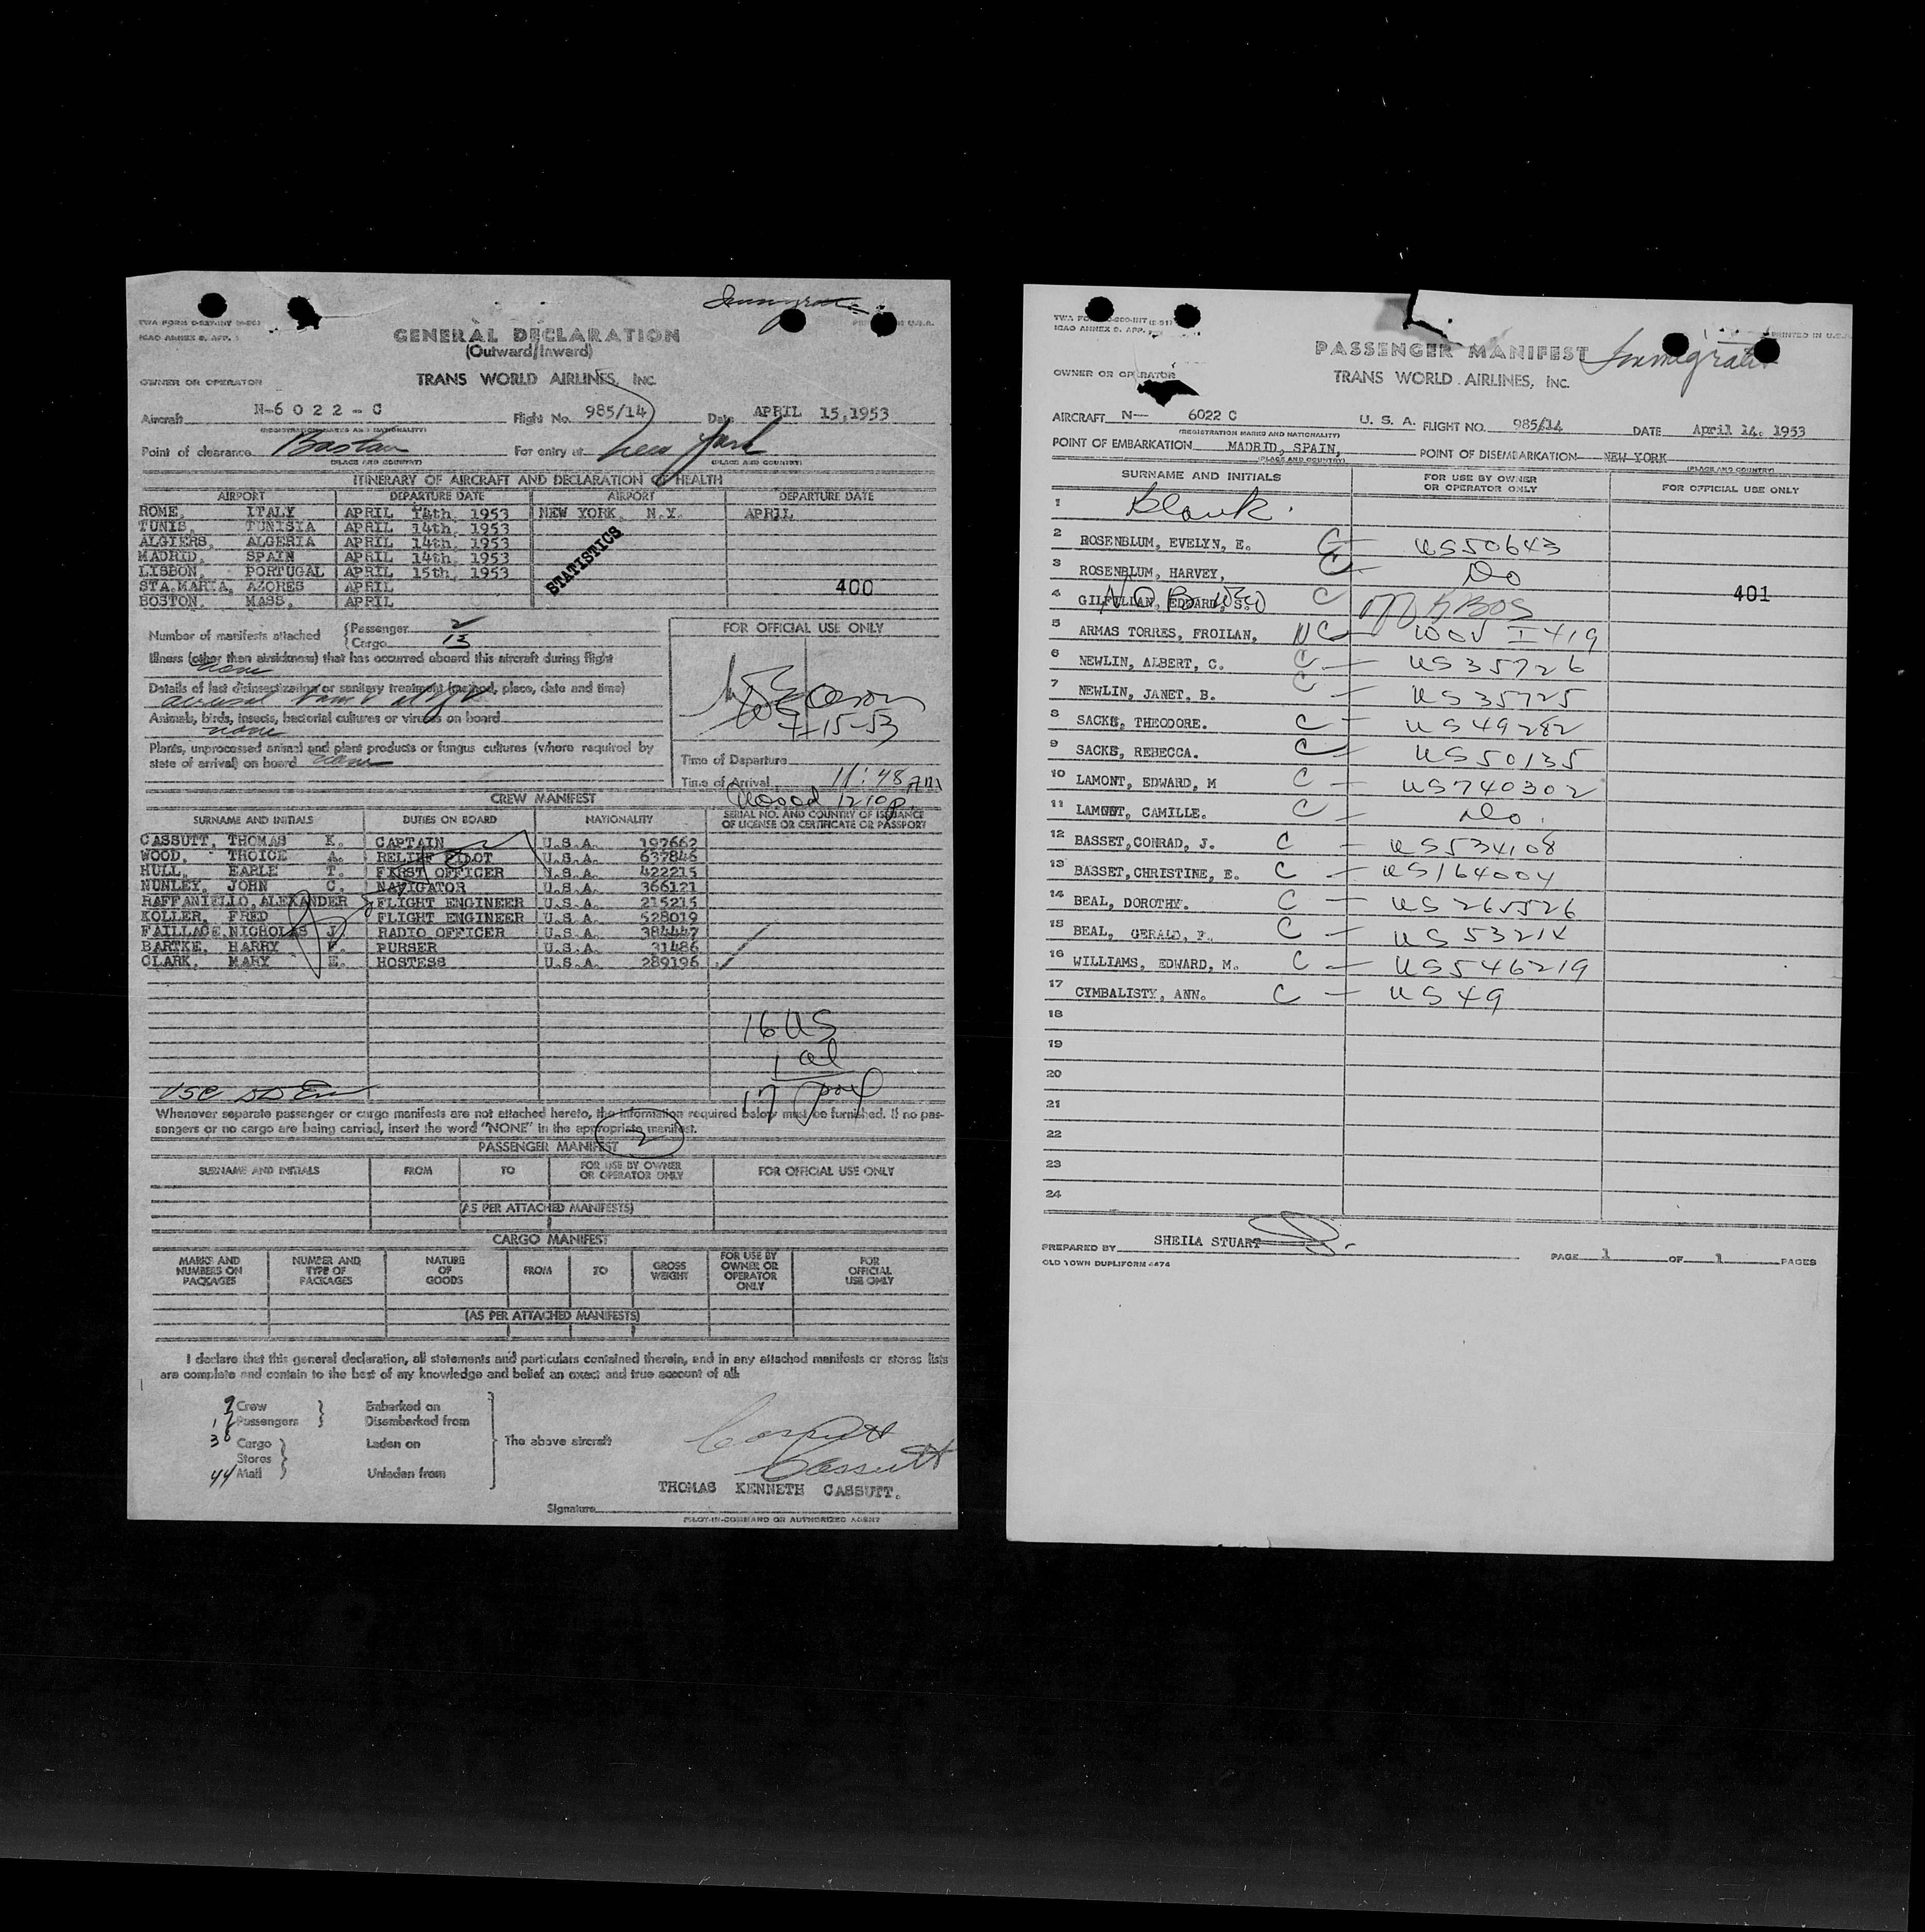 Immigration
TWA FORM
PRINTED IN U.S.A.
ICAO ANNEX 9, APP. 1
GENERAL DECLARATION
(Outward/Inward)
OWNER OR OPERATOR TRANS WORLD AIRLINES, INC.
Aircraft N-6022-C Flight No. 985/14 Date APRIL 15,1953
(REGISTRATION MARKS AND NATIONALITY)
Point of clearance Boston For entry at New York
(PLACE AND COUNTRY) (PLACE AND COUNTRY)
ITINERARY OF AIRCRAFT AND DECLARATION OF HEALTH
AIRPORT DEPARTURE DATE AIRPORT DEPARTURE DATE
ROME, ITALY APRIL 14th, 1953 NEW YORK, N.Y. APRIL
TUNIS, TUNISIA APRIL 14th, 1953
ALGIERS, ALGERIA APRIL 14th, 1953
MADRID, SPAIN APRIL 14th, 1953
LISBON, PORTUGAL APRIL 15th, 1953
STA.MARIA, AZORES APRIL
BOSTON, MASS. APRIL
STATISTICS
400
Number of manifests attached Passenger 2
Cargo 13
FOR OFFICIAL USE ONLY
Illness (other than airsickness) that has occurred aboard this aircraft during flight
none
Details of last disinsectization or sanitary treatment (method, place, date and time)
Animals, birds, insects, bacterial cultures or viruses on board
none
Plants, unprocessed animal and plant products or fungus cultures (where required by
state of arrival) on board none
4-15-53
Time of Departure
Time of Arrival 11:48 AM
1210p
CREW MANIFEST
SURNAME AND INITIALS DUTIES ON BOARD NATIONALITY SERIAL NO. AND COUNTRY OF ISSUANCE OF LICENSE OR CERTIFICATE OR PASSPORT
CASSUTT, THOMAS K. CAPTAIN U.S.A. 197662
WOOD, THOICE A. RELIEF PILOT U.S.A. 637846
HULL, EARLE T. FIRST OFFICER U.S.A. 422215
NUNLEY, JOHN C. NAVIGATOR U.S.A. 366121
RAFFANIELLO, ALEXANDER FLIGHT ENGINEER U.S.A. 215215
KOLLER, FRED FLIGHT ENGINEER U.S.A. 528019
FAILLACE, NICHOLAS J. RADIO OFFICER U.S.A. 384447
BARTKE, HARRY F. PURSER U.S.A. 31486
CLARK, MARY E. HOSTESS U.S.A. 289196
16 US
1 al
17
USC
Whenever separate passenger or cargo manifests are not attached hereto, the information required below must be furnished. If no pas-
sengers or no cargo are being carried, insert the word "NONE" in the appropriate manifest.
2
PASSENGER MANIFEST
SURNAME AND INITIALS FROM TO FOR USE BY OWNER OR OPERATOR ONLY FOR OFFICIAL USE ONLY
(AS PER ATTACHED MANIFESTS)
CARGO MANIFEST
MARKS AND NUMBERS ON PACKAGES NUMBER AND TYPE OF PACKAGES NATURE OF GOODS FROM TO GROSS WEIGHT FOR USE BY OWNER OR OPERATOR ONLY FOR OFFICIAL USE ONLY
(AS PER ATTACHED MANIFESTS)
I declare that this general declaration, all statements and particulars contained therein, and in any attached manifests or stores lists
are complete and contain to the best of my knowledge and belief an exact and true account of all:
9 Crew Embarked on
17 Passengers Disembarked from
Cargo Laden on The above aircraft
Stores
44 Mail Unladen from
Cassutt
THOMAS KENNETH CASSUTT.
Signature
PILOT-IN-COMMAND OR AUTHORIZED AGENT
PRINTED IN U.S.A.
ICAO ANNEX 9, APP.
PASSENGER MANIFEST
Immigration
OWNER OR OPERATOR TRANS WORLD AIRLINES, INC.
AIRCRAFT N— 6022 C U. S. A. FLIGHT NO. 985/14 DATE April 14, 1953
(REGISTRATION MARKS AND NATIONALITY)
POINT OF EMBARKATION MADRID, SPAIN, POINT OF DISEMBARKATION NEW YORK
(PLACE AND COUNTRY) (PLACE AND COUNTRY)
SURNAME AND INITIALS FOR USE BY OWNER OR OPERATOR ONLY FOR OFFICIAL USE ONLY
1 Blank.
2 ROSENBLUM, EVELYN, E. C — US50643
3 ROSENBLUM, HARVEY, C — Do
4 GILFILLAN, EDWARD, S. C
401
5 ARMAS TORRES, FROILAN, NC — 100V I-419
6 NEWLIN, ALBERT, C. C — US35726
7 NEWLIN, JANET, B. C — US35725
8 SACKS, THEODORE. C — US49282
9 SACKS, REBECCA. C — US50135
10 LAMONT, EDWARD, M C — US740302
11 LAMONT, CAMILLE. C — Do.
12 BASSET,CONRAD, J. C — US534108
13 BASSET,CHRISTINE, E. C — US164004
14 BEAL, DOROTHY. C — US265526
15 BEAL, GERALD, F. C — US53214
16 WILLIAMS, EDWARD, M. C — US546219
17 CYMBALISTY, ANN. C — US49
18
19
20
21
22
23
24
PREPARED BY SHEILA STUART PAGE 1 OF 1 PAGES
OLD TOWN DUPLIFORM 4474